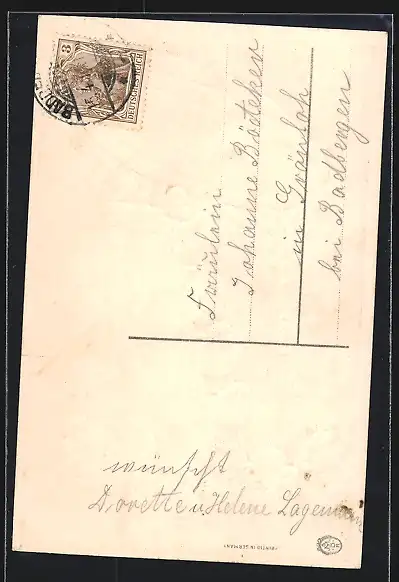 3
DEUTSCHES REICH
Fräulein
Johanne Börteker
in Grönloh
bei Badbergen
wünscht
Dorette u. Helene Lagemann
PRINTED IN GERMANY